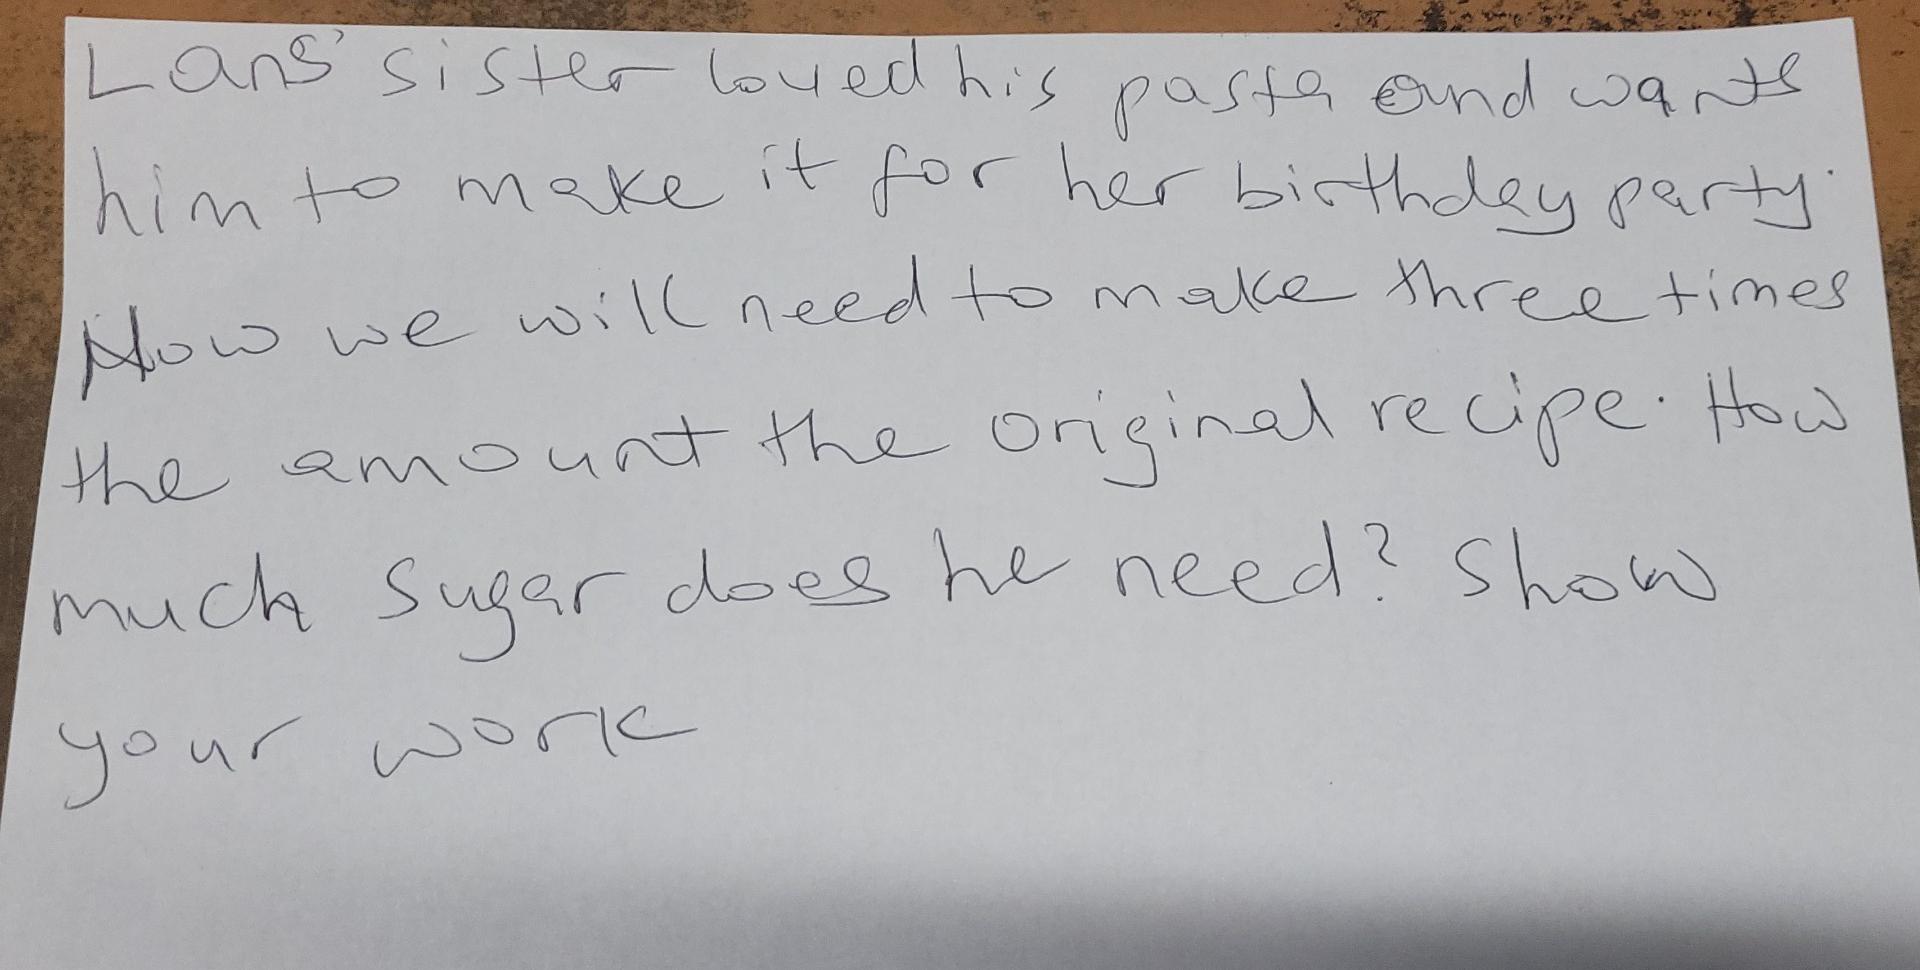 Lans' sister loved his pasta and wants
him to make it for her birthday party.
Now we will need to make three times
the amount the original recipe. How
much sugar does he need? Show
your work